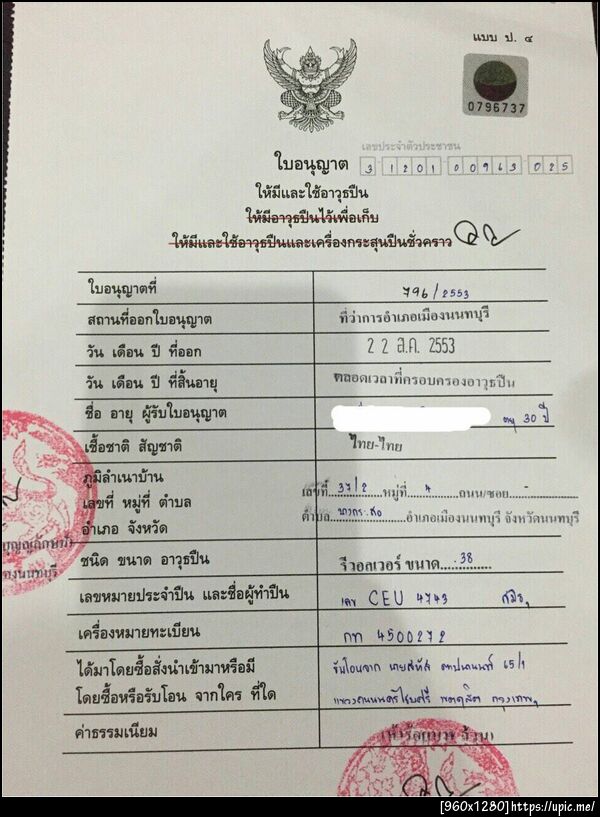 แบบ ป. ๔
0796737
เลขประจำตัวประชาชน
ใบอนุญาต 3 1201 00963 025
ให้มีและใช้อาวุธปืน
ให้มีอาวุธปืนไว้เพื่อเก็บ
ให้มีและใช้อาวุธปืนและเครื่องกระสุนปืนชั่วคราว
ใบอนุญาตที่ 796/2553
สถานที่ออกใบอนุญาต ที่ว่าการอำเภอเมืองนนทบุรี
วัน เดือน ปี ที่ออก 2 2 ส.ค. 2553
วัน เดือน ปี ที่สิ้นอายุ ตลอดเวลาที่ครอบครองอาวุธปืน
ชื่อ อายุ ผู้รับใบอนุญาต อายุ 30 ปี
เชื้อชาติ สัญชาติ ไทย-ไทย
ภูมิลำเนาบ้าน
เลขที่ หมู่ที่ ตำบล เลขที่ 37/2 หมู่ที่ 4 ถนน/ซอย -
อำเภอ จังหวัด ตำบล บางกระสอ อำเภอเมืองนนทบุรี จังหวัดนนทบุรี
ชนิด ขนาด อาวุธปืน รีวอลเวอร์ ขนาด .38
เลขหมายประจำปืน และชื่อผู้ทำปืน เลข CEU 4743 สมิธฯ
เครื่องหมายทะเบียน กท 4500272
ได้มาโดยซื้อสั่งนำเข้ามาหรือมี รับโอนจาก 65/1
โดยซื้อหรือรับโอน จากใคร ที่ใด แขวงถนนนครไชยศรี เขตดุสิต กรุงเทพฯ
ค่าธรรมเนียม
[960x1280]https://upic.me/